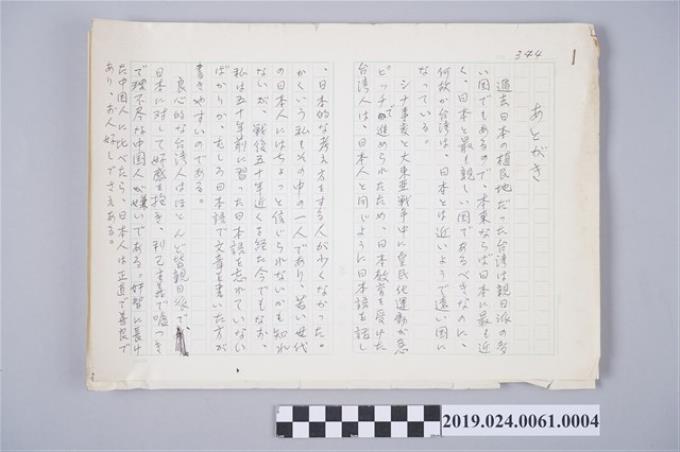 344
1
あとがき
過去日本の植民地だった台湾は親日派の多
い国でもあるので、本来ならば日本に最も近
く、日本と最も親しい国であるべきなのに、
何故か台湾は、日本とは近いようで遠い国に
なっている。
シナ事変と大東亜戦争中に皇民化運動が急
ピッチで進められたため、日本教育を受けた
台湾人は、日本人と同じように日本語を話し
、日本的な考え方をする人が少くなかった。
かくいう私もその中の一人であり、若い世代
の日本人にはちょっと信じられないかも知れ
ないが、戦後五十年近くを経た今でもなお、
私は五十年前に習った日本語を忘れていない
ばかりか、むしろ日本語で文章を書いた方が
書きやすいのである。
良心的な台湾人はほとんど皆親日派で、
日本に対して好感を抱き、利己主義で嘘つき
で理不尽な中国人が嫌いである。奸智に長け
た中国人に比べたら、日本人は正直で善良で
あり、お人好しでさえある。
2019.024.0061.0004